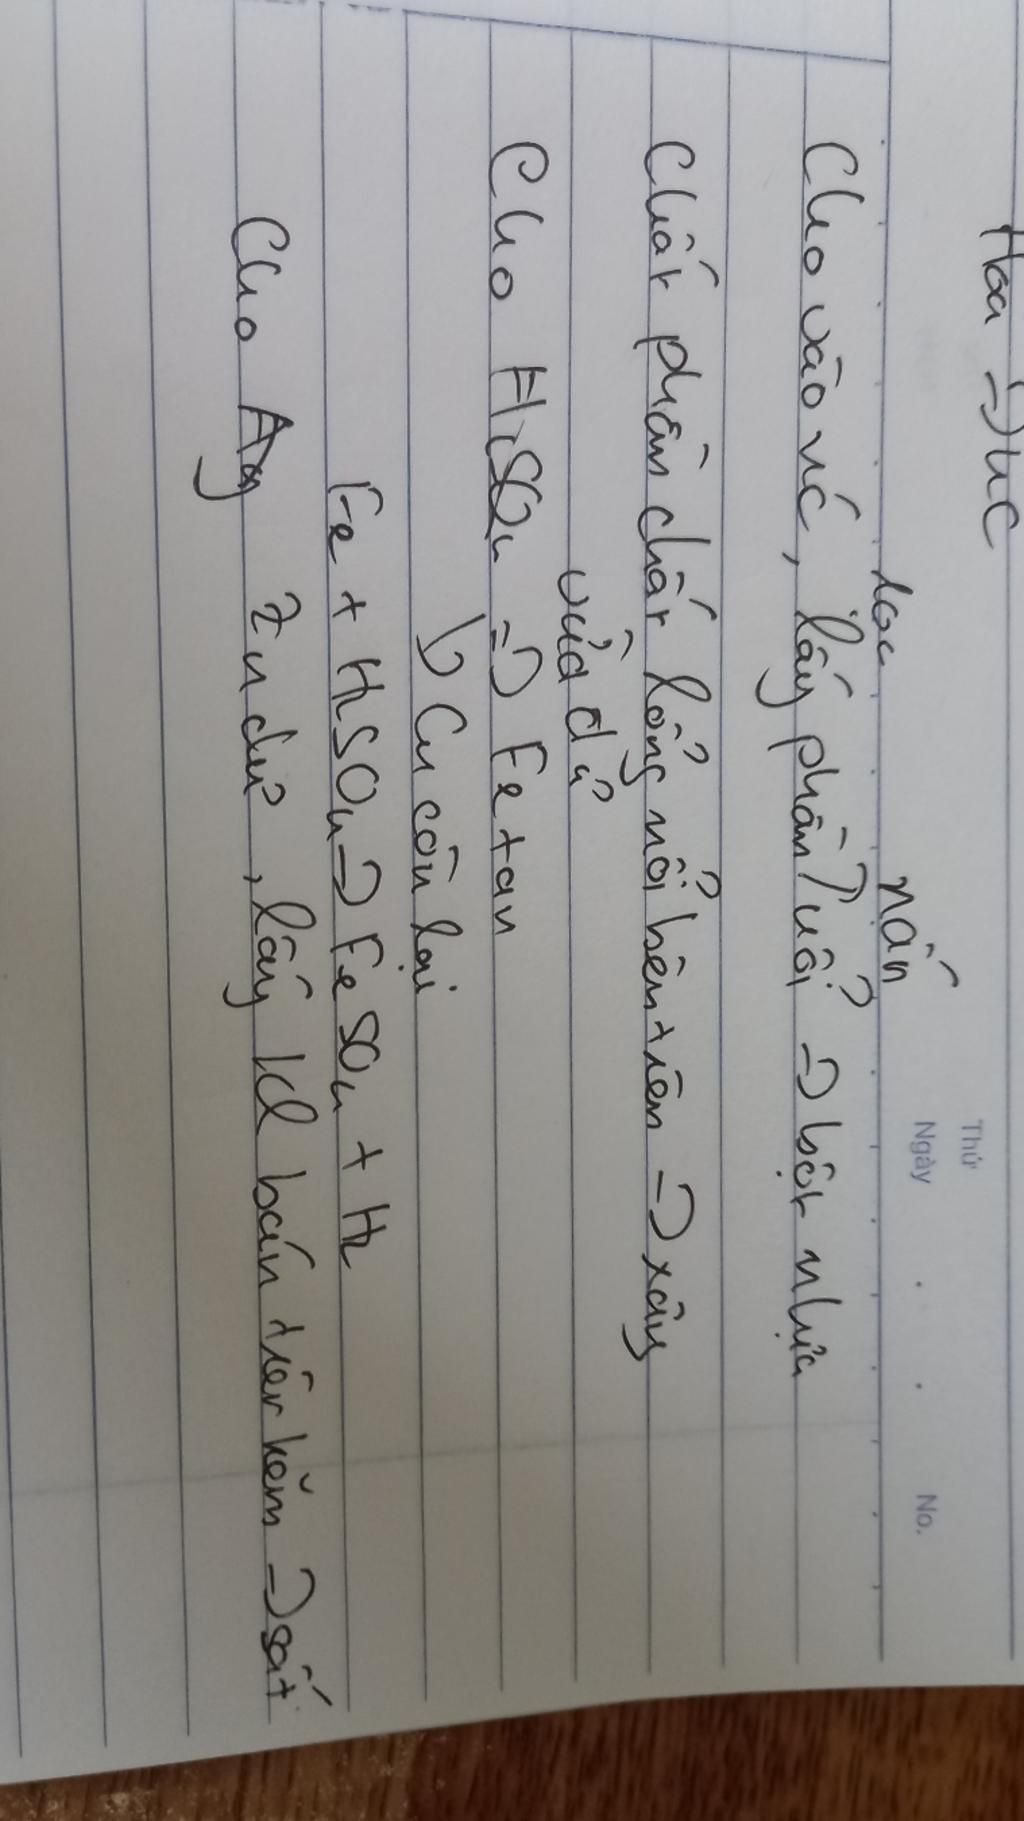 Hoá → Đức
Thứ
Ngày . . No.
lọc nến
Cho vào nước, lấy phần nổi => bột nhựa
Chất phần chất lỏng nổi bên trên => xăng
vừa đủ
Cho H2SO4 => Fe tan
↳ Cu còn lại
Fe + HSO4 => FeSO4 + H2
Cho Ag Zn dư, lấy Kl bán trên kẽm => sắt